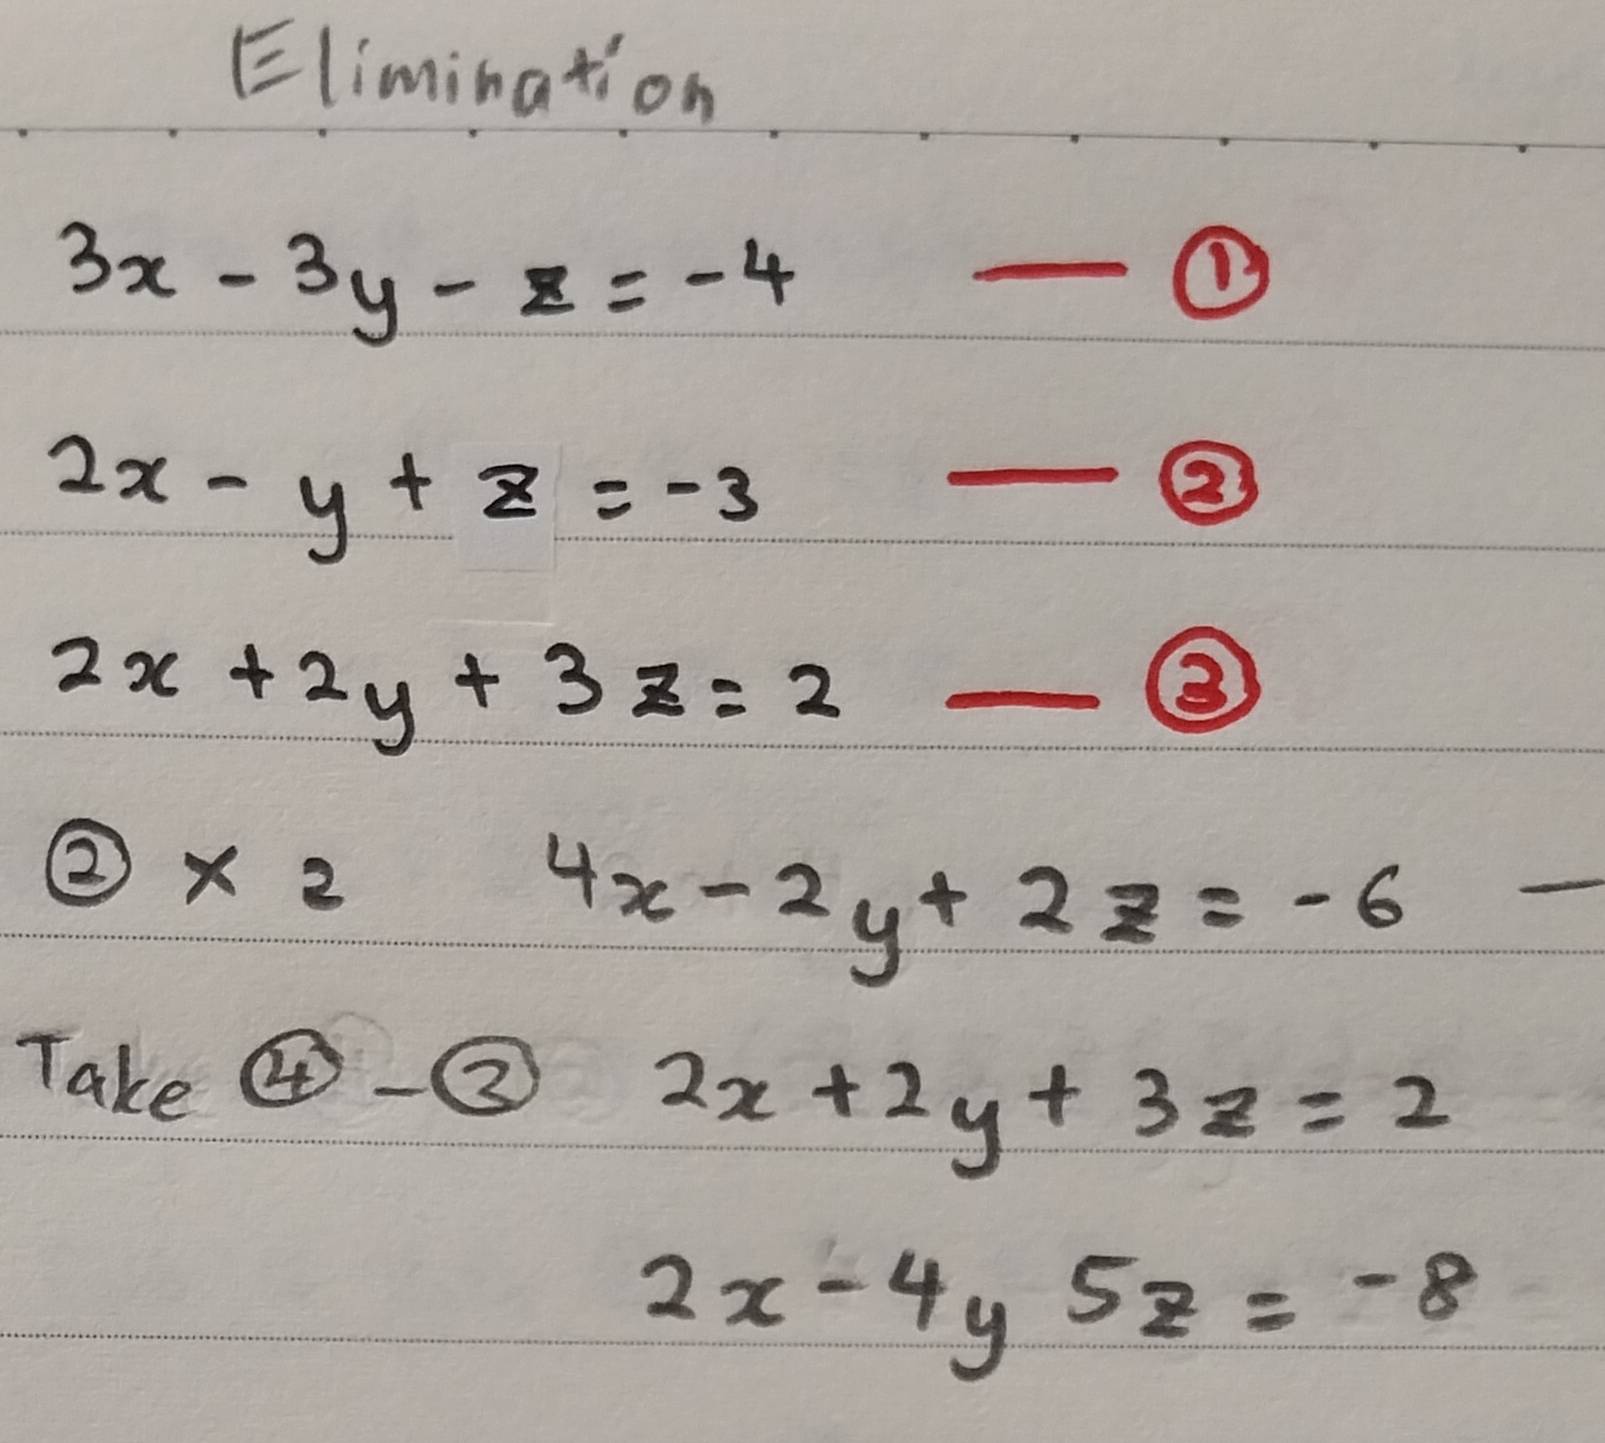 Elimination
3x - 3y - z = -4 — ①
2x - y + z = -3 — ②
2x + 2y + 3z = 2 — ③
② × 2 4x - 2y + 2z = -6 —
Take ④ - ③ 2x + 2y + 3z = 2
2x - 4y 5z = -8